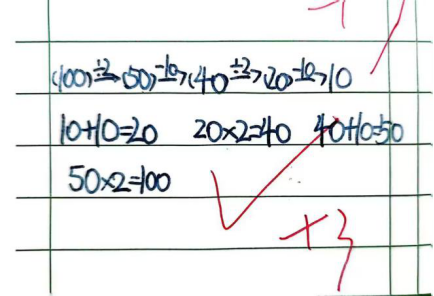 (100) ÷2→ (50) -10→ (40 ÷2→ (20) -10→ 10
10+10=20 20×2=40 40+10=50
50×2=100
+3